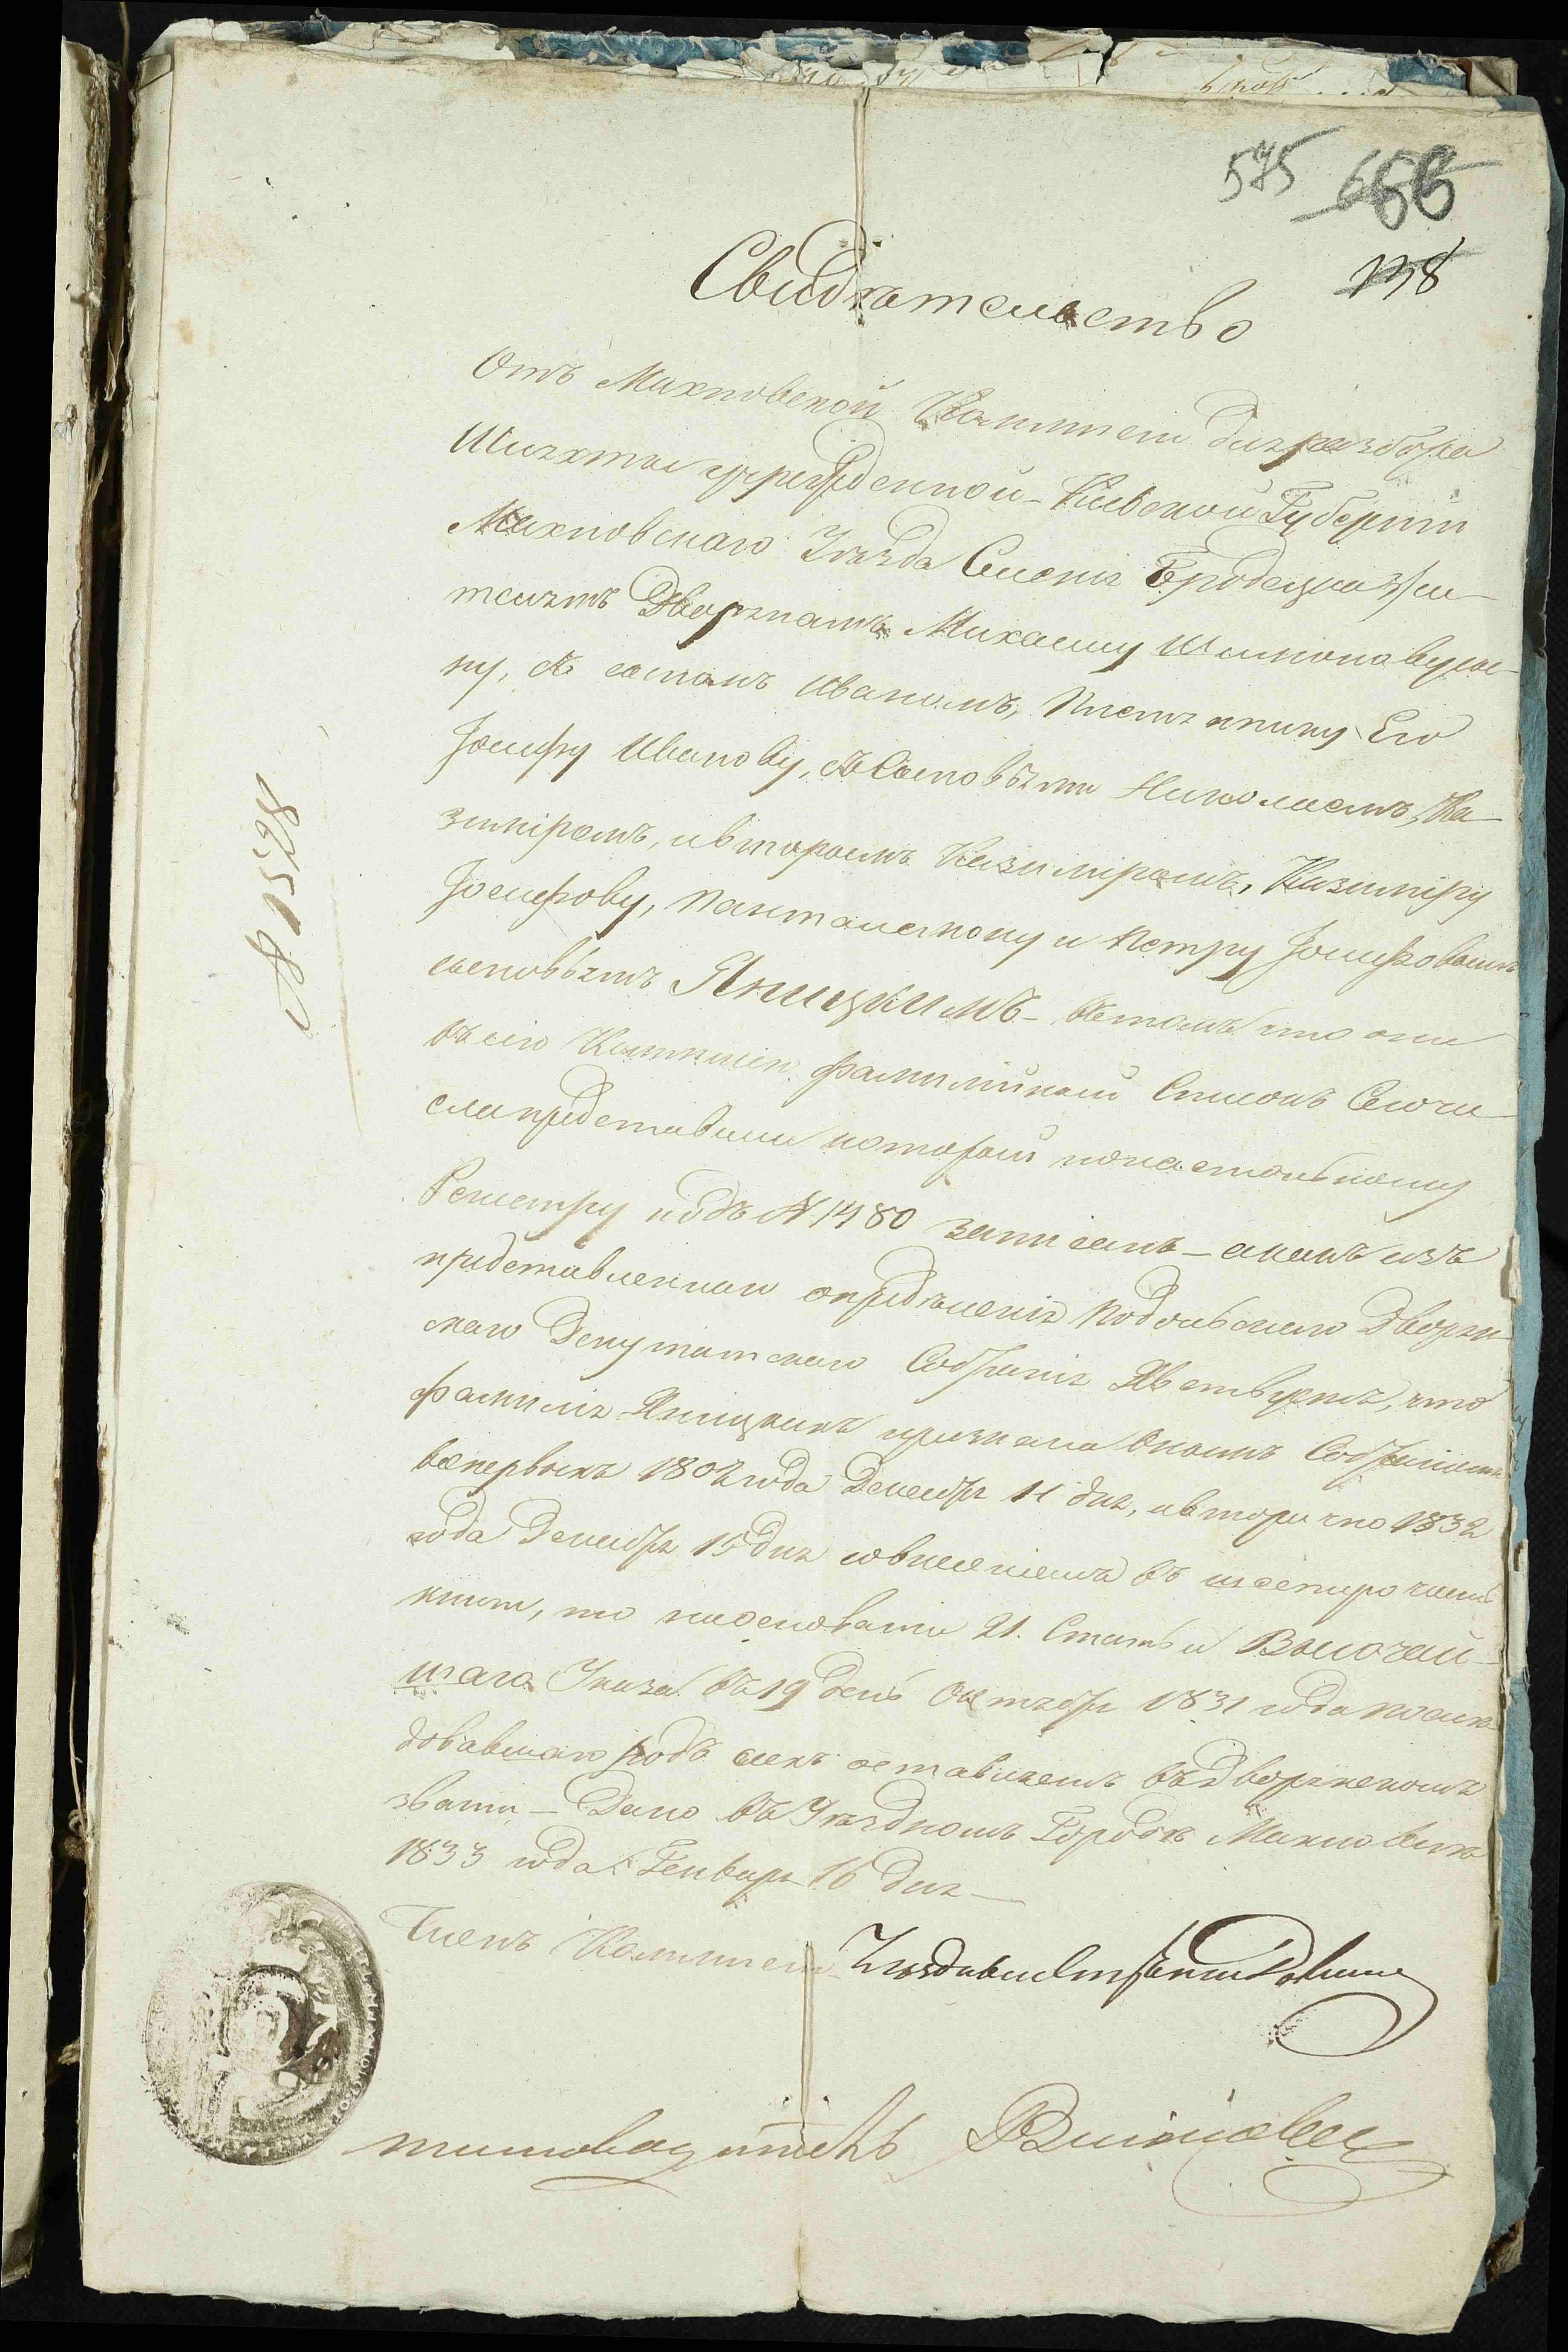 575 666
198
Свидѣтельство
Отъ Махновской Коммисіи для разбора
Шляхты учрежденной – Кіевской Губерніи
Махновскаго Уѣзда Селенія Бродецка Жи-
телямъ Дворянамъ Михаилу Шимонову сы-
ну, съ сыномъ Иваномъ, Племяннику Его
Іосифу Иванову, съ Сыновьями Николаемъ, Ка-
зиміромъ, и вторымъ Казиміромъ, Казиміру
Іосифову, Панталемону и Петру Іосифовымъ
сыновьямъ Яницкимъ – въ томъ что они
въ сію Коммисію фамилійный Списокъ Семи
представили который по настольному
Реестру подъ № 1480 записанъ – а какъ изъ
представленнаго опредѣленія Подольскаго Дворян-
скаго Депутатскаго Собранія Явствуетъ, что
фамилія Яницкихъ признана Онымъ Собраніемъ
вопервыхъ 1802 года Декабря 11 дня, и вторично 1832
года Декабря 15 дня со внесеніемъ въ шестую часть
книги, то на основаніи 21. Статьи Высочай-
шаго Указа въ 19 день Октября 1831 года послѣ-
довавшаго родъ сей оставляетъ въ Дворянскомъ
званіи – Дано въ Уѣздномъ Городѣ Махновкѣ
1833 года Генваря 16 дня –
Членъ Коммисіи
№ 1528